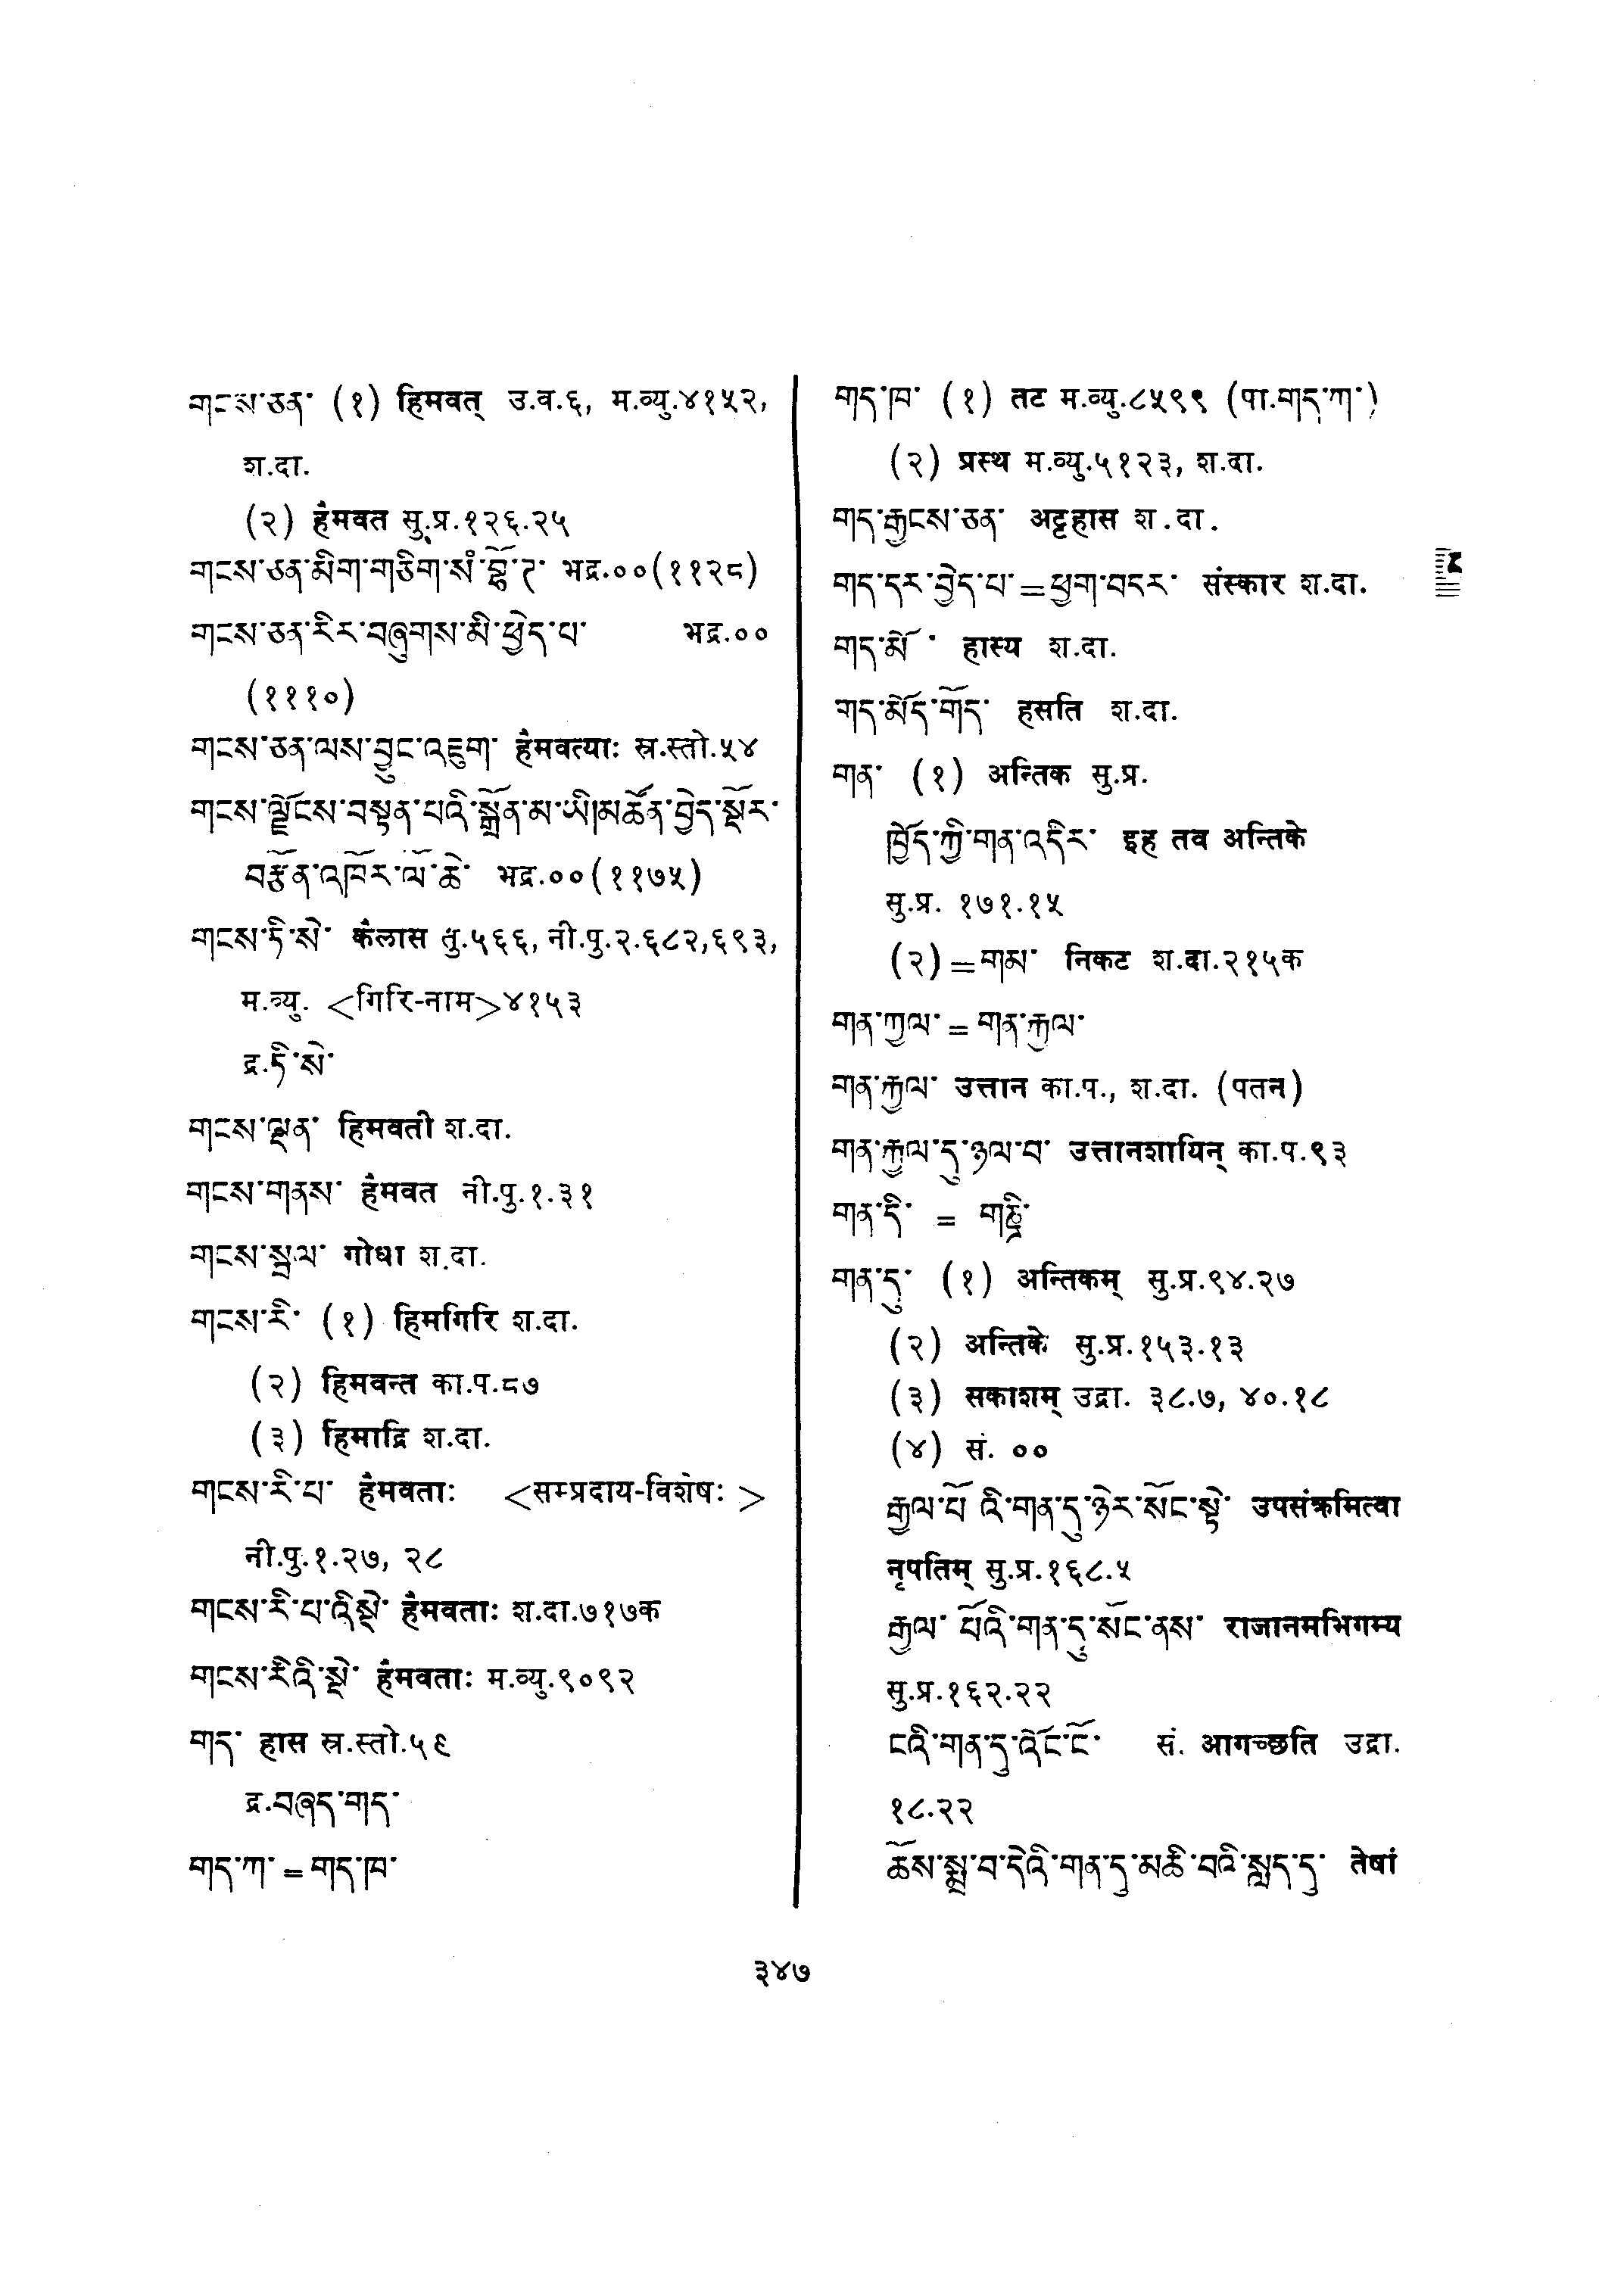 གངས་ཅན་ (१) हिमवत् उ.व.६, म.व्यु.४१५२,
श.दा.
(२) हैमवत सु.प्र.१२६.२५
གངས་ཅན་མིག་གཅིག་སཾ་བྷོ་ཊ་ भद्र.००(११२८)
གངས་ཅན་རིར་བཞུགས་མི་ཕྱེད་པ་ भद्र.००
(१११०)
གངས་ཅན་ལས་བྱུང་འཇུག་ हैमवत्याः स्र.स्तो.५४
གངས་ལྗོངས་བསྟན་པའི་སྒྲོན་མ་ཡི།མཚོན་བྱེད་སྔོར་
བརྩོན་འཁོར་ལོ་ཆེ་ भद्र.००(११७५)
གངས་ཏི་སེ་ कैलास तु.५६६, नी.पु.२.६८२,६९३,
म.व्यु. <गिरि-नाम>४१५३
द्र.ཏི་སེ་
གངས་ལྡན་ हिमवती श.दा.
གངས་གནས་ हैमवत नी.पु.१.३१
གངས་སྦལ་ गोधा श.दा.
གངས་རི་ (१) हिमगिरि श.दा.
(२) हिमवन्त का.प.८७
(३) हिमाद्रि श.दा.
གངས་རི་པ་ हैमवताः <सम्प्रदाय-विशेषः>
नी.पु.१.२७, २८
གངས་རི་པ་འི་སྡེ་ हैमवताः श.दा.७१७क
གངས་རིའི་སྡེ་ हैमवताः म.व्यु.९०९२
གད་ हास स्र.स्तो.५९
द्र.བཞད་གད་
གད་ཀ་ = གད་ཁ་
གད་ཁ་ (१) तट म.व्यु.८५९९ (पा.གད་ཀ་)
(२) प्रस्थ म.व्यु.५१२३, श.दा.
གད་རྒྱངས་ཅན་ अट्टहास श.दा.
གད་དར་བྱེད་པ་ = ཕྱག་བདར་ संस्कार श.दा.
གད་མོ་ हास्य श.दा.
གད་མོད་གོད་ हसति श.दा.
གན་ (१) अन्तिक सु.प्र.
ཁྱོད་ཀྱི་གན་འདིར་ इह तव अन्तिके
सु.प्र. १७१.१५
(२) = གམ་ निकट श.दा.२१५क
གན་ཀྱལ་ = གན་རྐྱལ་
གན་རྐྱལ་ उत्तान का.प., श.दा. (पतन)
གན་རྐྱལ་དུ་ཉལ་བ་ उत्तानशायिन् का.प.९३
གན་དི་ = གཎྜི་
གན་དུ་ (१) अन्तिकम् सु.प्र.९४.२७
(२) अन्तिके सु.प्र.१५३.१३
(३) सकाशम् उद्रा. ३८.७, ४०.१८
(४) सं. ००
རྒྱལ་པོ འི་གན་དུ་ཉེར་སོང་སྟེ་ उपसंक्रमित्वा
नृपतिम् सु.प्र.१६८.५
རྒྱལ་ པོའི་གན་དུ་སོང་ནས་ राजानमभिगम्य
सु.प्र.१६२.२२
ངའི་གན་དུ་འོང་ངོ་ सं. आगच्छति उद्रा.
१८.२२
ཆོས་སྨྲ་བ་དེའི་གན་དུ་མཆི་བའི་སླད་དུ་ तेषां
३४७